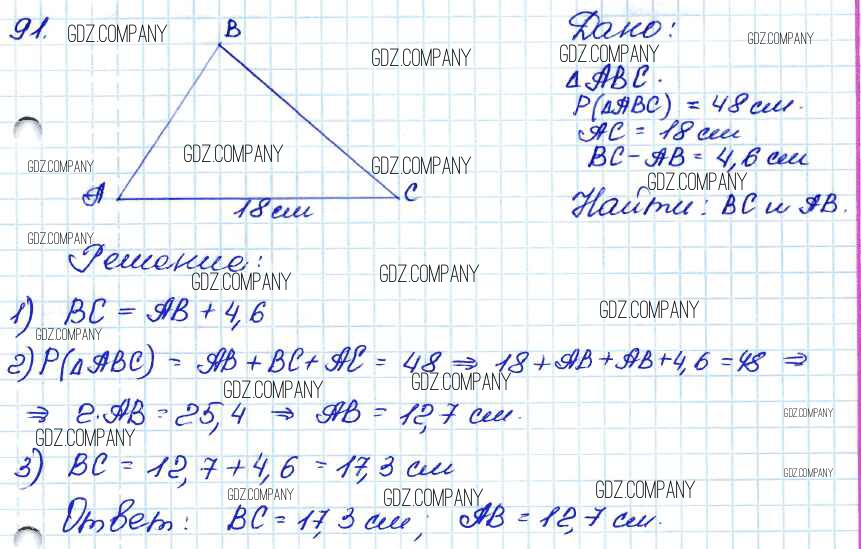 91. GDZ.COMPANY
B
Дано:
GDZ.COMPANY
GDZ.COMPANY
GDZ.COMPANY
△ABC.
P(△ABC) = 48 см.
AC = 18 см
BC - AB = 4,6 см
GDZ.COMPANY
GDZ.COMPANY
GDZ.COMPANY
GDZ.COMPANY
A
C
18 см
Найти: BC и AB.
GDZ.COMPANY
Решение:
GDZ.COMPANY
GDZ.COMPANY
1) BC = AB + 4,6
GDZ.COMPANY
GDZ.COMPANY
2) P(△ABC) = AB + BC + AC = 48 ⇒ 18 + AB + AB + 4,6 = 48 ⇒
GDZ.COMPANY
GDZ.COMPANY
⇒ 2·AB = 25,4 ⇒ AB = 12,7 см.
GDZ.COMPANY
GDZ.COMPANY
3) BC = 12,7 + 4,6 = 17,3 см
GDZ.COMPANY
GDZ.COMPANY
GDZ.COMPANY
GDZ.COMPANY
Ответ: BC = 17,3 см; AB = 12,7 см.